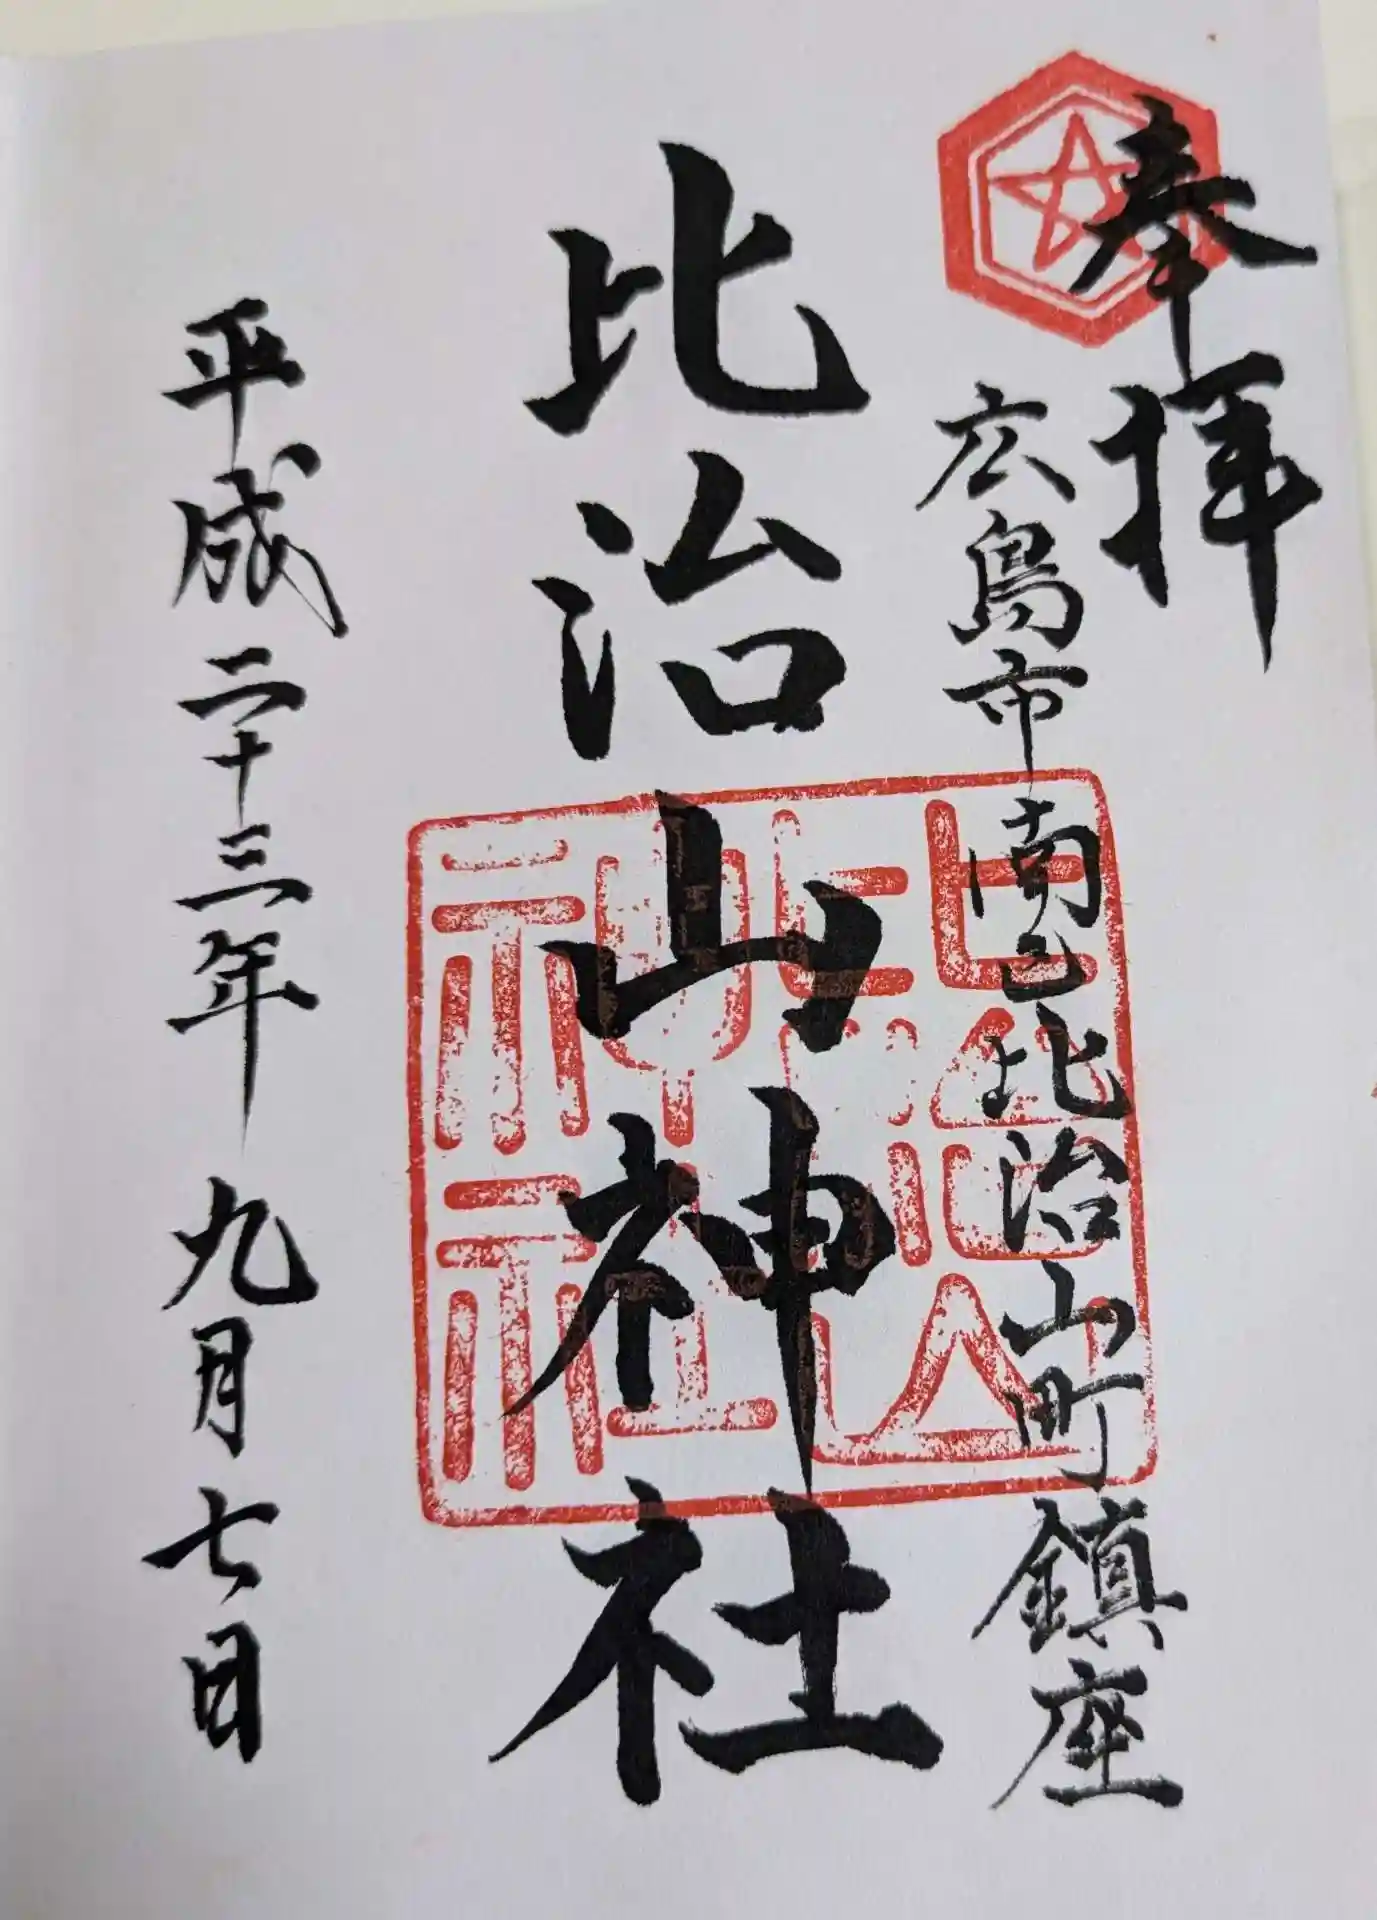 奉拝
広島市南区比治山町鎮座
比治山神社
比治山
神社
平成二十三年九月七日